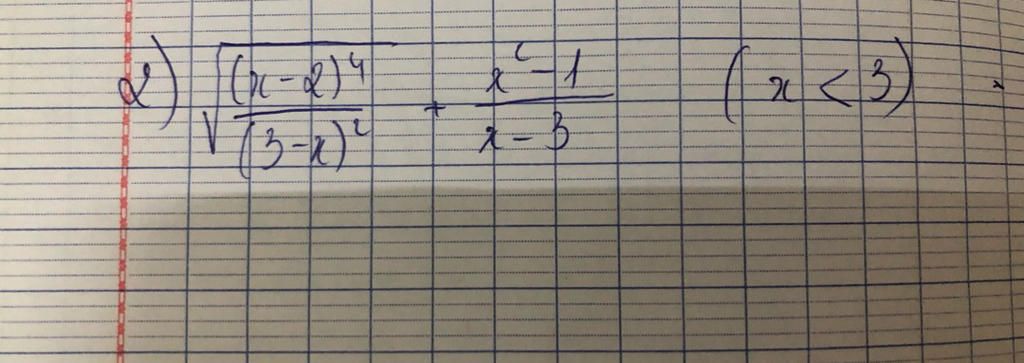 2) √((x-2)⁴/(3-x)²) + (x²-1)/(x-3) (x < 3)